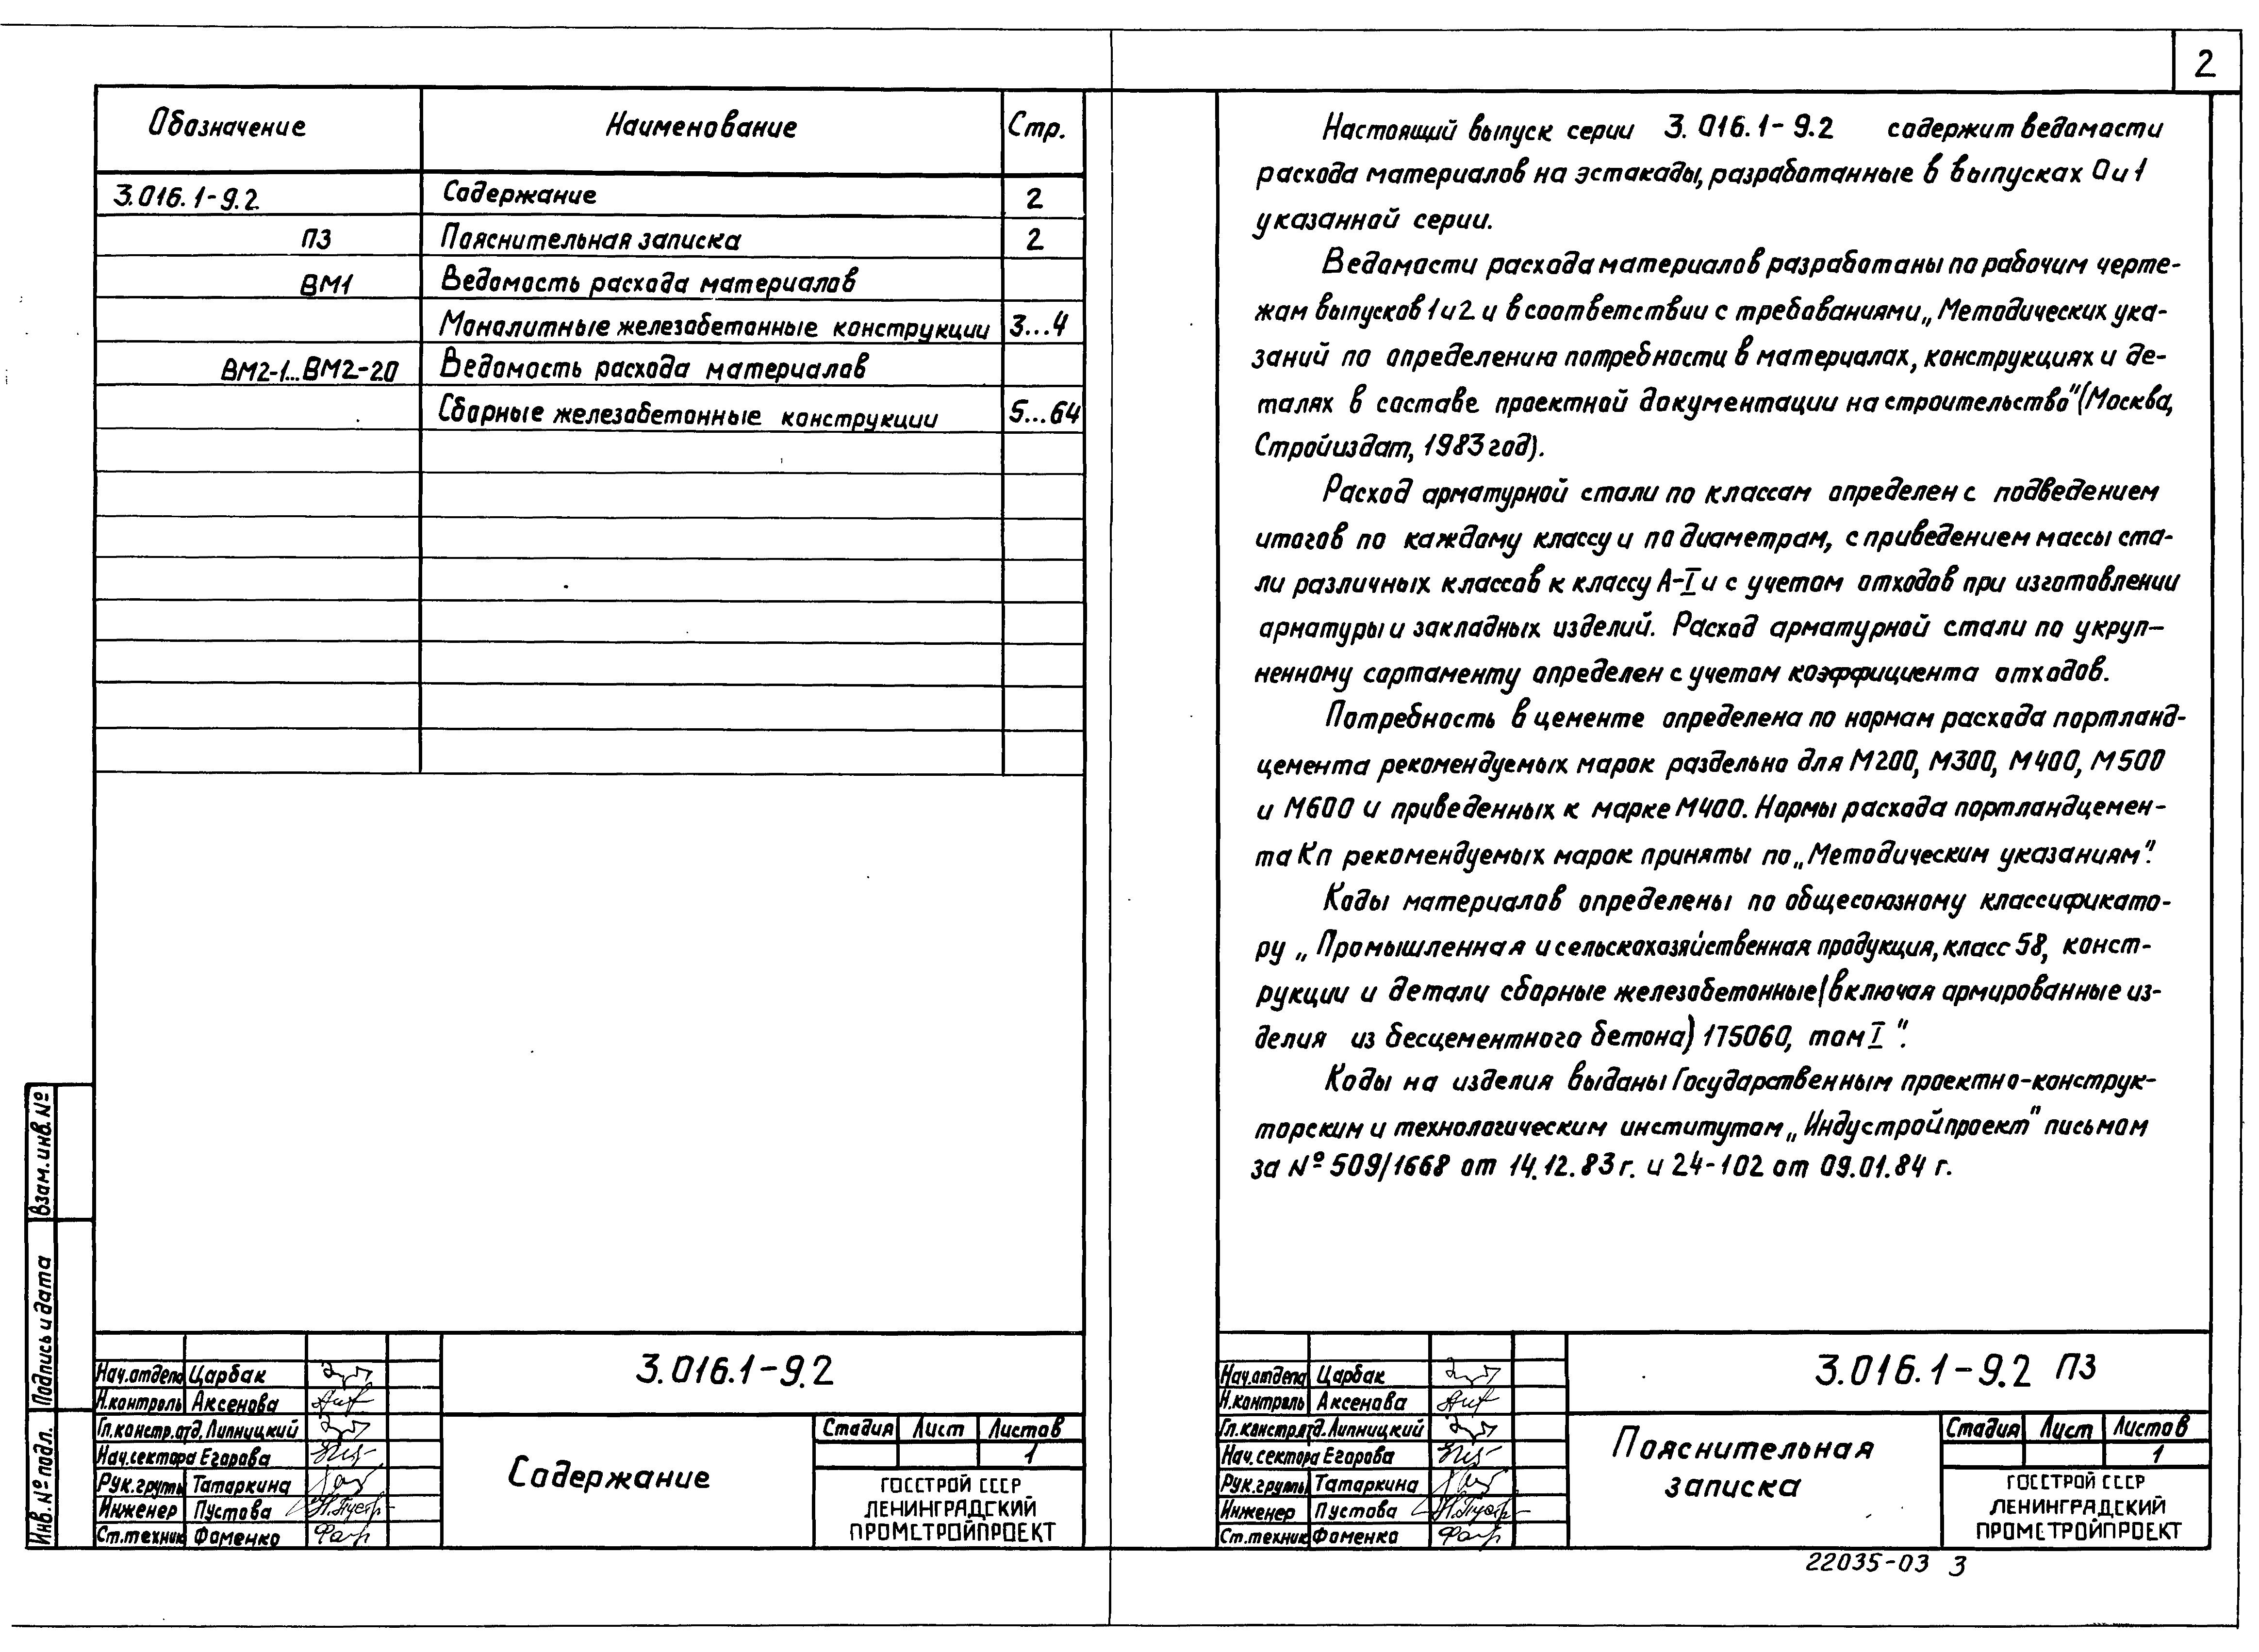 2
Обозначение Наименование Стр.
3.016.1-9.2 Содержание 2
ПЗ Пояснительная записка 2
ВМ1 Ведомость расхода материалов
Монолитные железобетонные конструкции 3...4
ВМ2-1...ВМ2-20 Ведомость расхода материалов
Сборные железобетонные конструкции 5...64
Взам.инв.№
Подпись и дата
Инв.№ подл.
Нач.отдела Царбак
Н.контроль Аксенова
Гл.констр.отд. Липницкий
Нач.сектора Егорова
Рук.группы Татаркина
Инженер Пустова
Ст.техник Фоменко
3.016.1-9.2
Содержание
Стадия Лист Листов
1
ГОССТРОЙ СССР
ЛЕНИНГРАДСКИЙ
ПРОМСТРОЙПРОЕКТ
Настоящий выпуск серии 3.016.1-9.2 содержит ведомости
расхода материалов на эстакады, разработанные в выпусках 0 и 1
указанной серии.
Ведомости расхода материалов разработаны по рабочим черте-
жам выпусков 1 и 2 и в соответствии с требованиями „Методических ука-
заний по определению потребности в материалах, конструкциях и де-
талях в составе проектной документации на строительство" (Москва,
Стройиздат, 1983 год).
Расход арматурной стали по классам определен с подведением
итогов по каждому классу и по диаметрам, с приведением массы ста-
ли различных классов к классу А-I и с учетом отходов при изготовлении
арматуры и закладных изделий. Расход арматурной стали по укруп-
ненному сортаменту определен с учетом коэффициента отходов.
Потребность в цементе определена по нормам расхода портланд-
цемента рекомендуемых марок раздельно для М200, М300, М400, М500
и М600 и приведенных к марке М400. Нормы расхода портландцемен-
та Кп рекомендуемых марок приняты по „Методическим указаниям".
Коды материалов определены по общесоюзному классификато-
ру „Промышленная и сельскохозяйственная продукция, класс 58, конст-
рукции и детали сборные железобетонные (включая армированные из-
делия из бесцементного бетона) 175060, том I ".
Коды на изделия выданы Государственным проектно-конструк-
торским и технологическим институтом „Индустройпроект" письмом
за № 509/1668 от 14.12.83 г. и 24-102 от 09.01.84 г.
Нач.отдела Царбак
Н.контроль Аксенова
Гл.констр.отд. Липницкий
Нач.сектора Егорова
Рук.группы Татаркина
Инженер Пустова
Ст.техник Фоменко
3.016.1-9.2 ПЗ
Пояснительная
записка
Стадия Лист Листов
1
ГОССТРОЙ СССР
ЛЕНИНГРАДСКИЙ
ПРОМСТРОЙПРОЕКТ
22035-03 3